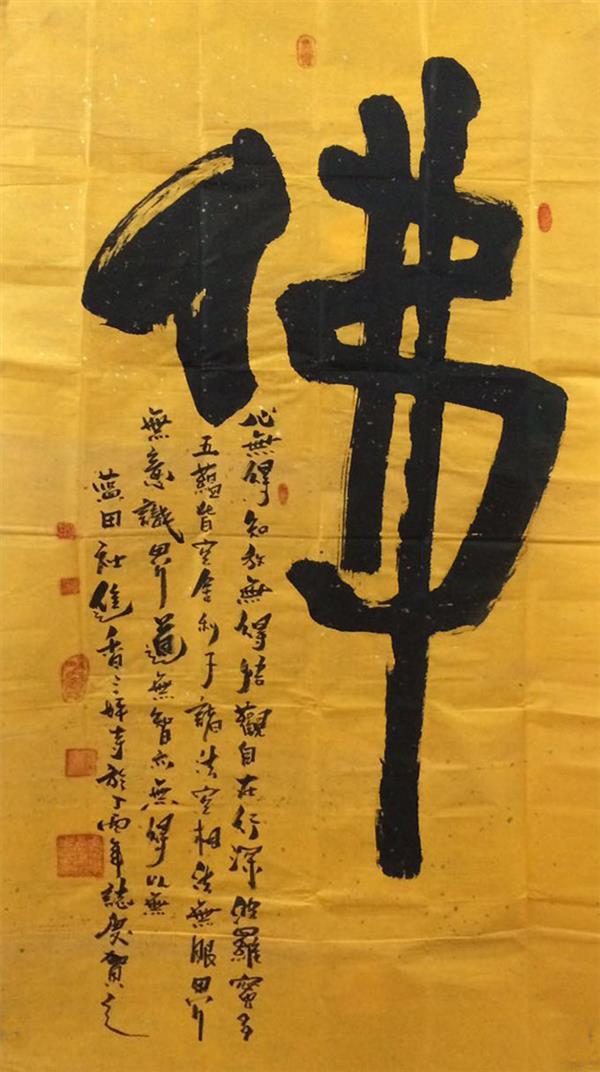 佛
心無得知故無得觀自在行深羅蜜多
五蘊皆空舍利子諸法空相法無眼界
無意識界道無智亦無得以無
藍田社進香三寺於丁丙年誌慶賀之